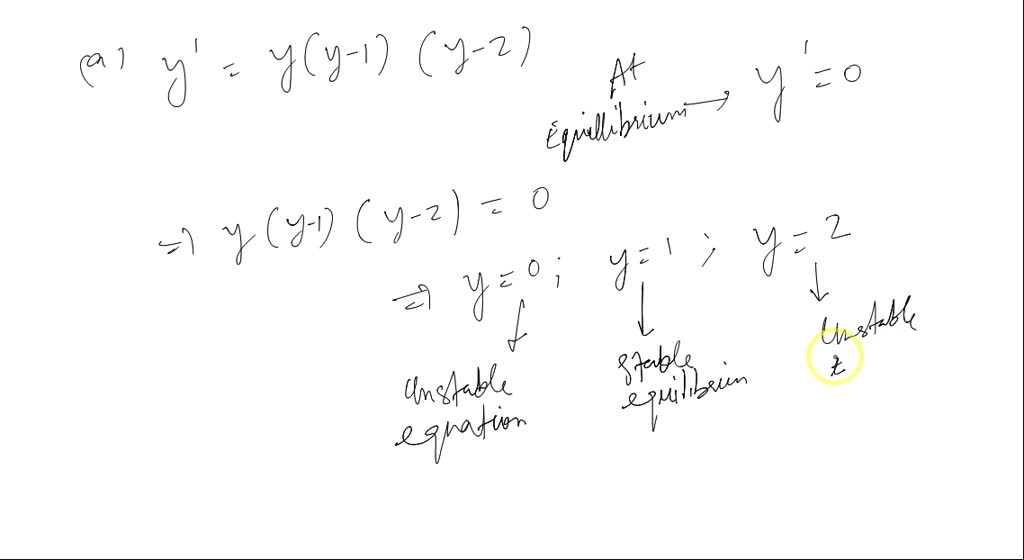 (a) y' = y(y-1) (y-2)
At
Equillibrium → y' = 0
⇒ y (y-1) (y-2) = 0
⇒ y = 0 ; y = 1 ; y = 2
Unstable equation
Stable equilibrium
Unstable
E